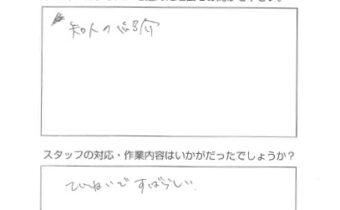 知人の紹介
スタッフの対応・作業内容はいかがだったでしょうか?
ていねいですばらしい。